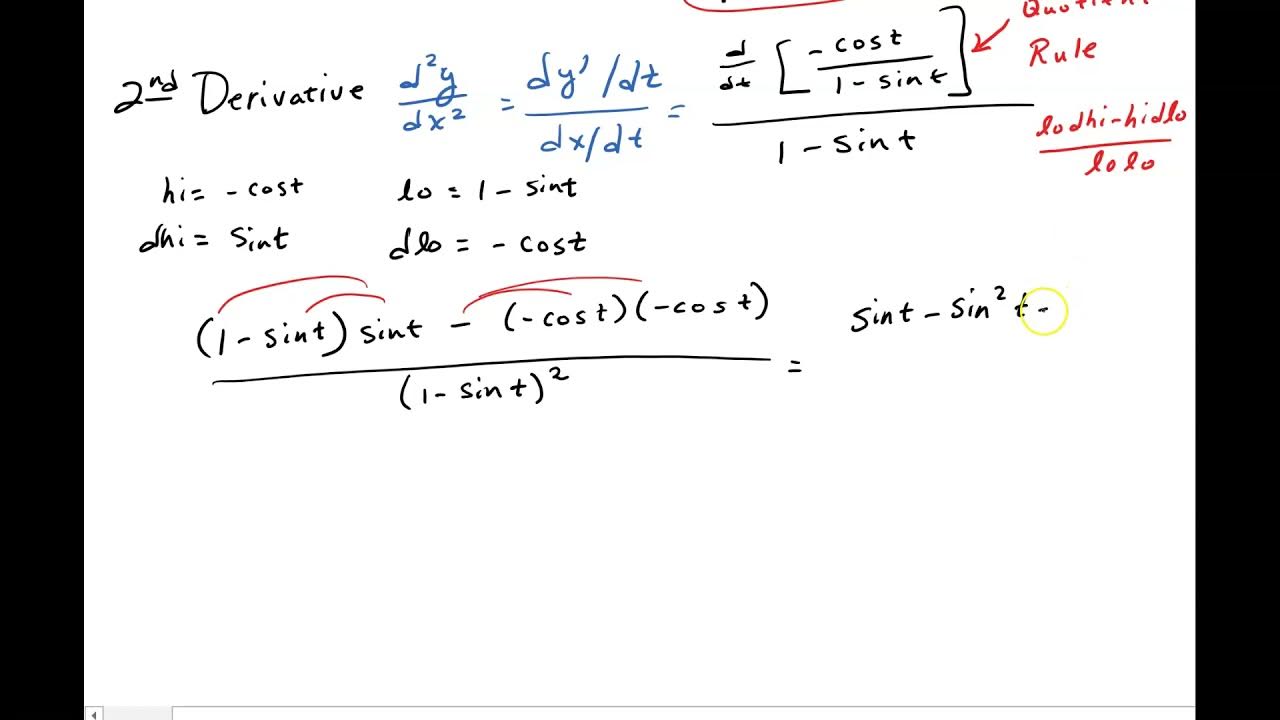 Rule
2nd Derivative d²y/dx² = dy'/dt / dx/dt = d/dt [ -cost / 1 - sint ] / 1 - sint
lodhi-hidlo / lolo
hi = - cost lo = 1 - sint
dhi = sint dlo = - cost
(1 - sint) sint - (-cost)(-cost) / (1 - sint)² = sint - sin² t -